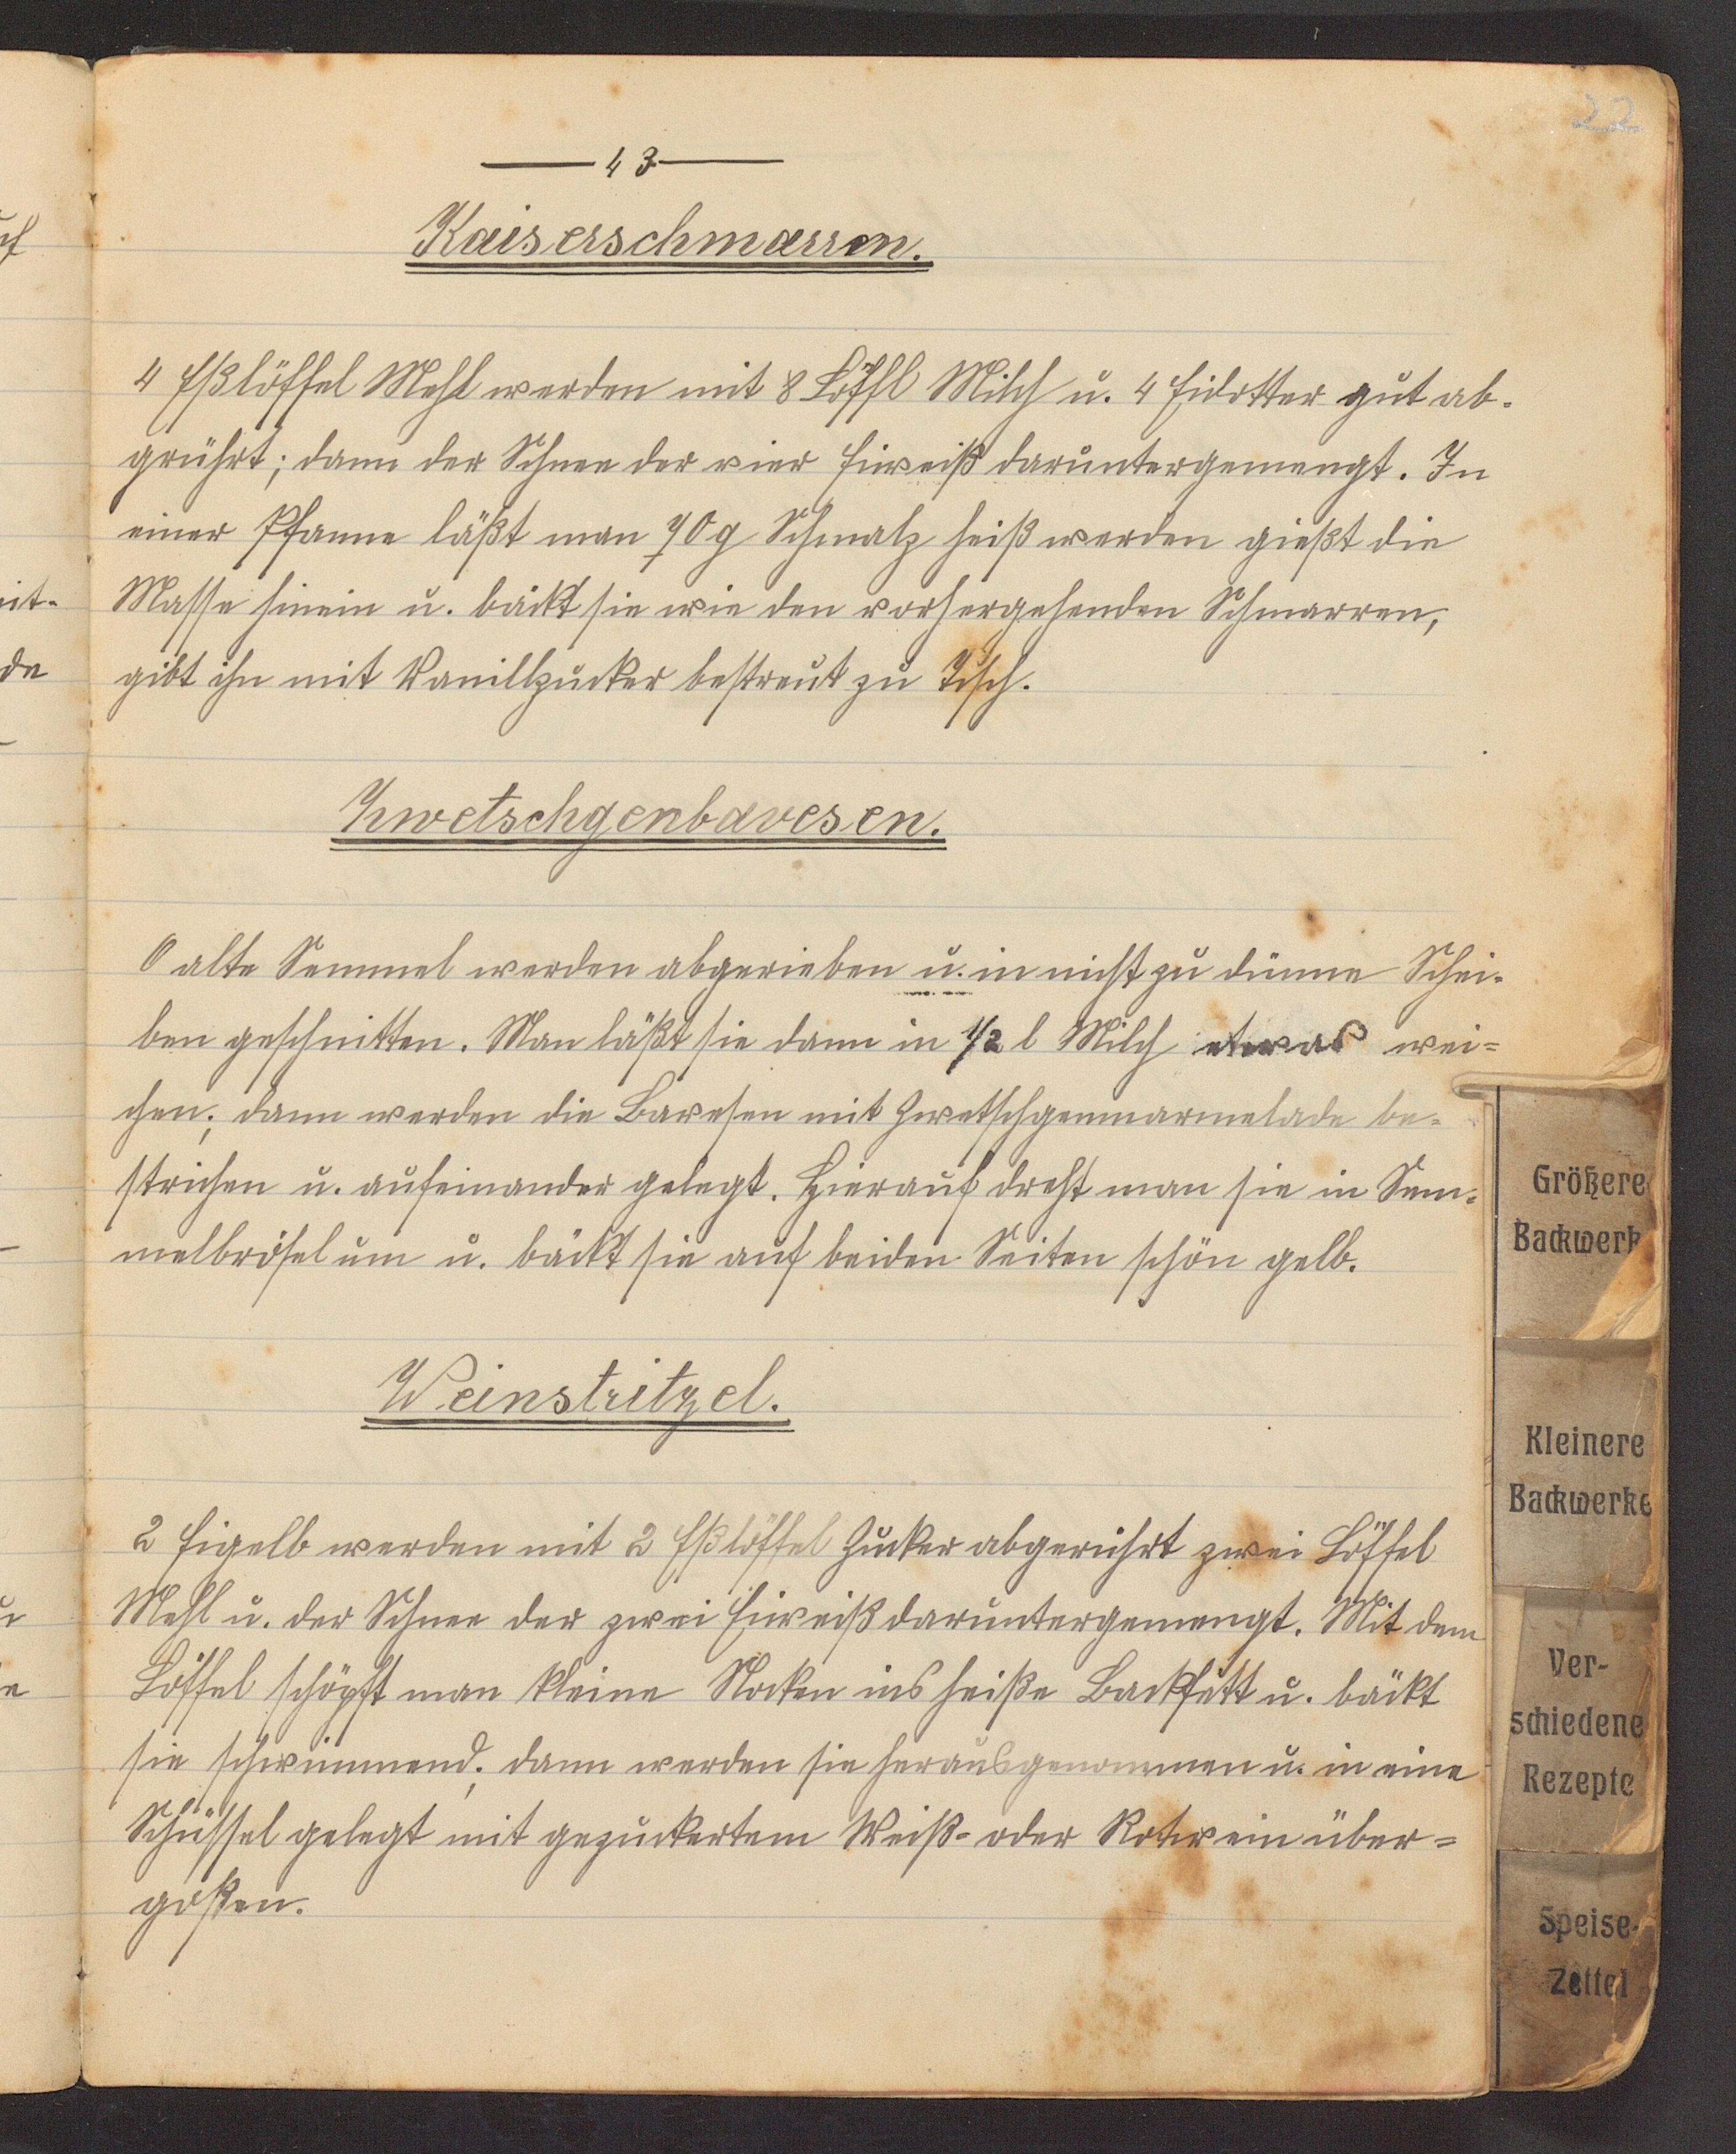 22
43
Kaiserschmarren.
4 Eßlöffel Mehl werden mit 8 Löffl Milch u. 4 Eidotter gut ab-
grührt; dann der Schnee der vier Eiweiß daruntergemengt. In
einer Pfanne läßt man 70 g Schmalz heiß werden gießt die
Masse hinein u. bäckt sie wie den vorhergehenden Schmarren,
gibt ihn mit Vanillzucker bestreut zu Tisch.
Zwetschgenbavesen.
alte Semmel werden abgerieben u. in nicht zu dünne Schei-
ben geschnitten. Man läßt sie dann in 1/2 l Milch etwas wei=
chen; dann werden die Bavesen mit Zwetschgenmarmelade be-
strichen u. aufeinander gelegt. Hierauf dreht man sie in Sem-
melbrösel um u. bäckt sie auf beiden Seiten schön gelb.
Weinstritzel.
2 Eigelb werden mit 2 Eßlöffel Zucker abgerührt zwei Löffel
Mehl u. der Schnee der zwei Eiweiß daruntergemengt. Mit dem
Löffel schöpft man kleine Nocken ins heiße Backfett u. bäckt
sie schwimmend; dann werden sie herausgenommen u. in eine
Schüssel gelegt mit gezuckertem Weiß- oder Rotwein über=
goßen.
Größere
Backwerk
Kleinere
Backwerke
Ver-
schiedene
Rezepte
Speise-
Zettel